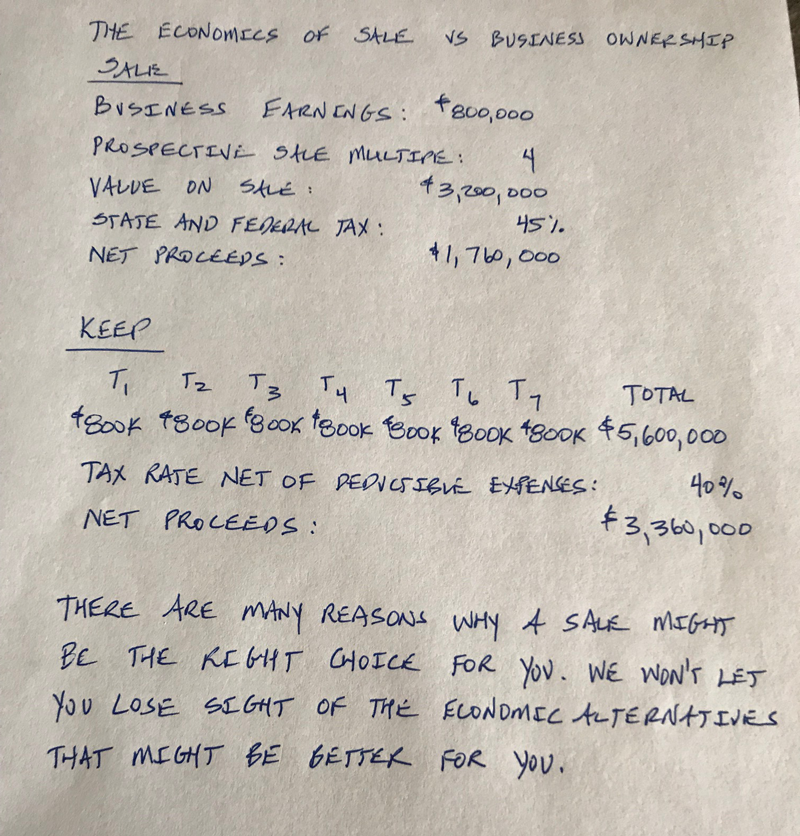 THE ECONOMICS OF SALE VS BUSINESS OWNERSHIP
SALE
BUSINESS EARNINGS: $800,000
PROSPECTIVE SALE MULTIPE: 4
VALUE ON SALE: $3,200,000
STATE AND FEDERAL TAX: 45%
NET PROCEEDS: $1,760,000
KEEP
T1 T2 T3 T4 T5 T6 T7 TOTAL
$800K $800K $800K $800K $800K $800K $800K $5,600,000
TAX RATE NET OF DEDUCTIBLE EXPENSES: 40%
NET PROCEEDS: $3,360,000
THERE ARE MANY REASONS WHY A SALE MIGHT
BE THE RIGHT CHOICE FOR YOU. WE WON'T LET
YOU LOSE SIGHT OF THE ECONOMIC ALTERNATIVES
THAT MIGHT BE BETTER FOR YOU.